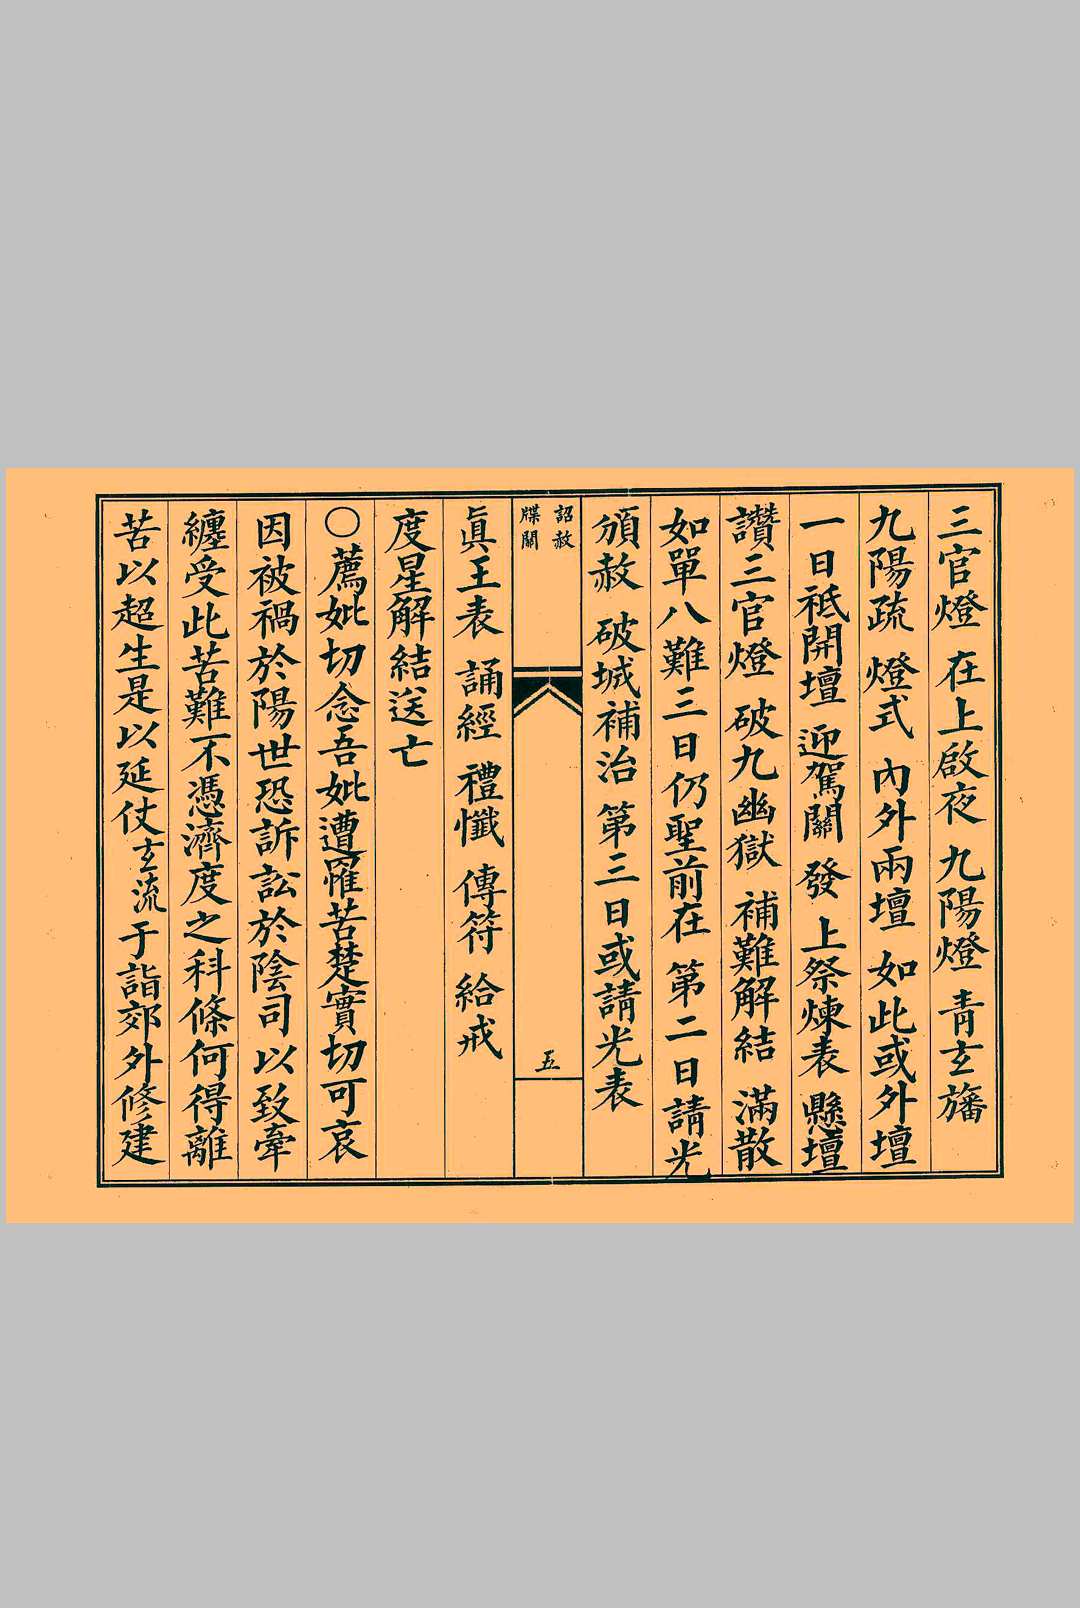 三官燈 在上啟夜 九陽燈 青玄旛
九陽疏 燈式 內外兩壇 如此或外壇
一日祗開壇 迎駕關 發 上祭煉表 懸壇
讚三官燈 破九幽獄 補難解結 滿散
如單八難三日仍聖前在 第二日請光
頒赦 破城補治 第三日或請光表
詔赦
牒關
五
真王表 誦經 禮懺 傳符 給戒
度星解結送亡
○薦妣切念吾妣遭罹苦楚實切可哀
因被禍於陽世恐訴訟於陰司以致牽
纏受此苦難不憑濟度之科條何得離
苦以超生是以延仗玄流于詣郊外修建